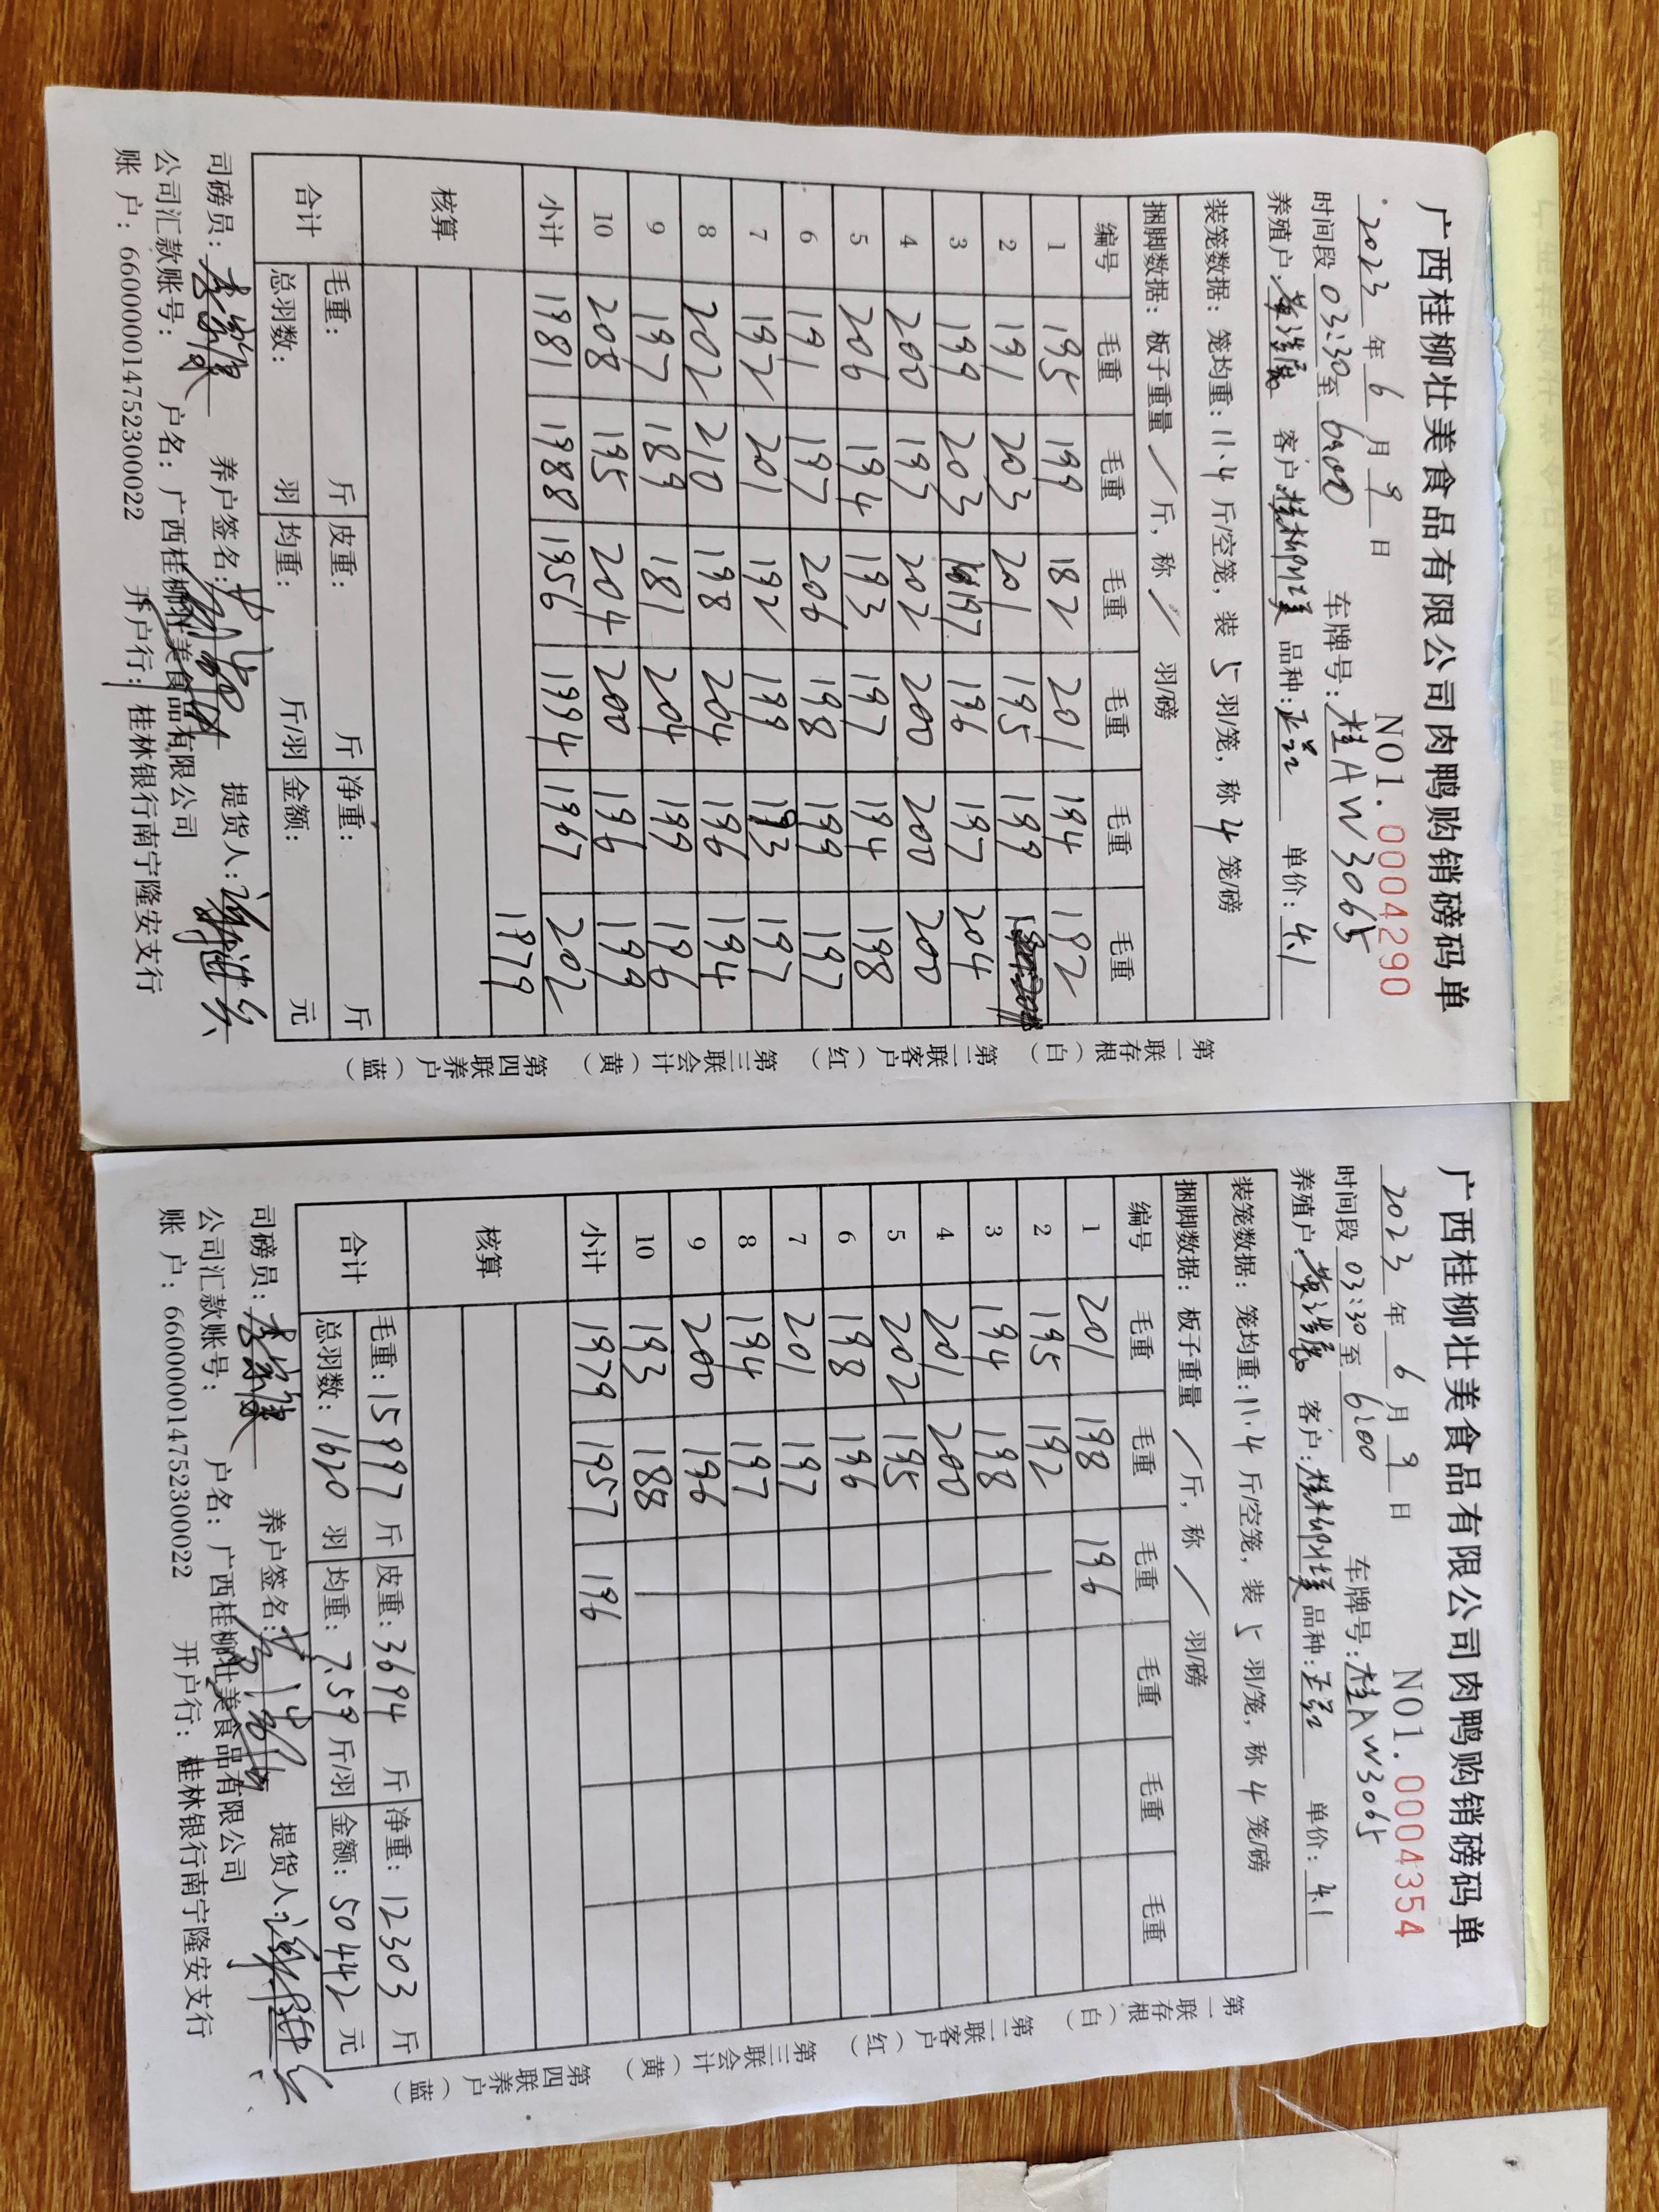 广西桂柳壮美食品有限公司肉鸭购销磅码单
NO1. 0004290
2023 年 6 月 9 日
时间段 03:30 至 6:00 车牌号: 桂AW3065
养殖户: 客户: 桂柳壮美 品种: 单价: 4.1
装笼数据: 笼均重: 11.4 斤/空笼, 装 5 羽/笼, 称 4 笼/磅
捆脚数据: 板子重量 / 斤, 称 / 羽/磅
编号 毛重 毛重 毛重 毛重 毛重 毛重
1 195 199 182 201 194 192
2 191 203 201 195 199
3 199 203 197 196 197 204
4 200 197 202 200 200 200
5 206 194 193 197 194 198
6 191 197 206 198 199 197
7 192 201 192 199 193 197
8 202 210 198 204 196 194
9 197 189 181 204 199 196
10 208 195 204 200 196 199
小计 1981 1988 1956 1994 1967 202
1979
核算
合计 毛重: 斤 皮重: 斤 净重: 斤
总羽数: 羽 均重: 斤/羽 金额: 元
司磅员: 养户签名: 提货人:
公司汇款账号: 户名: 广西桂柳壮美食品有限公司
账 户: 660000014752300022 开户行: 桂林银行南宁隆安支行
第一联存根(白) 第二联客户(红) 第三联会计(黄) 第四联养户(蓝)
广西桂柳壮美食品有限公司肉鸭购销磅码单
NO1. 0004354
2023 年 6 月 9 日
时间段 03:30 至 6:00 车牌号: 桂AW3065
养殖户: 客户: 桂柳壮美 品种: 单价: 4.1
装笼数据: 笼均重: 11.4 斤/空笼, 装 5 羽/笼, 称 4 笼/磅
捆脚数据: 板子重量 / 斤, 称 / 羽/磅
编号 毛重 毛重 毛重 毛重 毛重 毛重
1 201 198 196
2 195 192
3 194 198
4 201 200
5 202 195
6 198 196
7 201 197
8 194 197
9 200 196
10 193 188
小计 1979 1957 196
核算
合计 毛重: 15997 斤 皮重: 3694 斤 净重: 12303 斤
总羽数: 1620 羽 均重: 7.59 斤/羽 金额: 50442 元
司磅员: 养户签名: 提货人:
公司汇款账号: 户名: 广西桂柳壮美食品有限公司
账 户: 660000014752300022 开户行: 桂林银行南宁隆安支行
第一联存根(白) 第二联客户(红) 第三联会计(黄) 第四联养户(蓝)